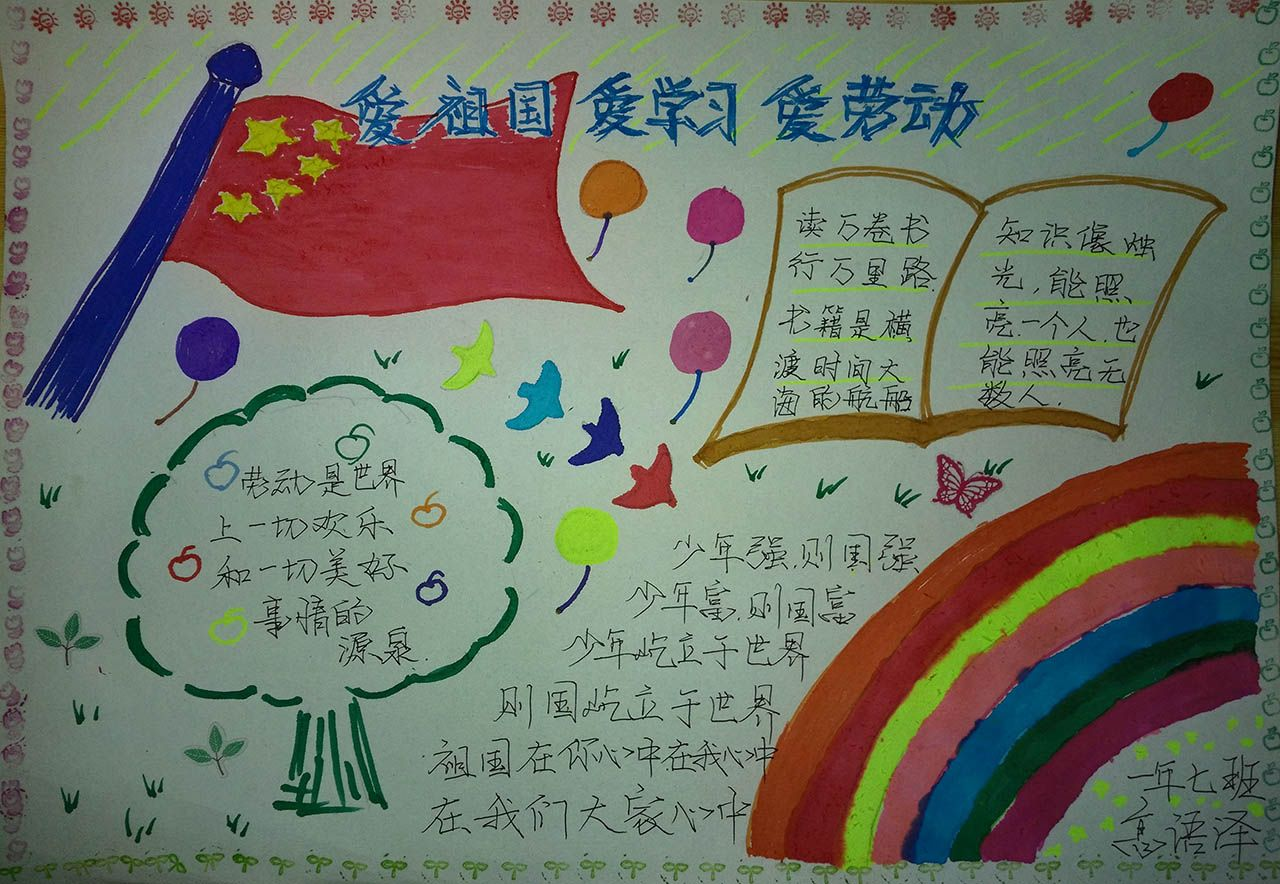 爱祖国 爱学习 爱劳动
读万卷书
行万里路
书籍是横
渡时间大
海的航船
知识像烛
光，能照
亮一个人，也
能照亮无
数人.
劳动是世界
上一切欢乐
和一切美好
事情的
源泉.
少年强，则国强
少年富，则国富
少年屹立于世界
则国屹立于世界
祖国在你心中在我心中
在我们大家心中
一年七班
高语泽